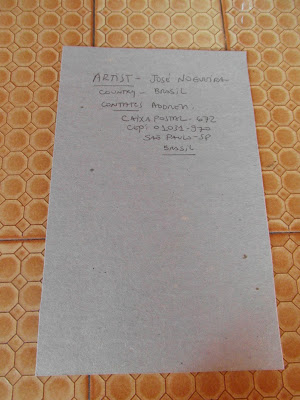 ARTIST - JOSÉ NOGUEIRA
COUNTRY - BRASIL
CONTATES ADDRESS
CAIXA POSTAL - 672
CEP: 01031-970
SAO PAULO - SP
BRASIL